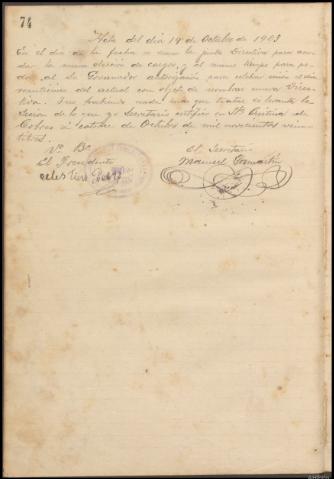 74
Acta del dia 14 de Octubre de 1923
En el dia de la fecha se reune la junta Directiva para acor
dar la nueva elección de cargos, y al mismo tiempo para pe
dir al Sr Governador autorización para celebrar unión
del actual con objeto de nombrar nueva Direc
tiva. Y no habiendo nada mas que tratar se levanta la
Sesion de lo cual yo Secretario certifico en Sta Cristina de
Cobres a catorce de Octubre de mil novecientos vein
titres.
Vº Bº El Secretario
El Presidente Manuel
Celestino